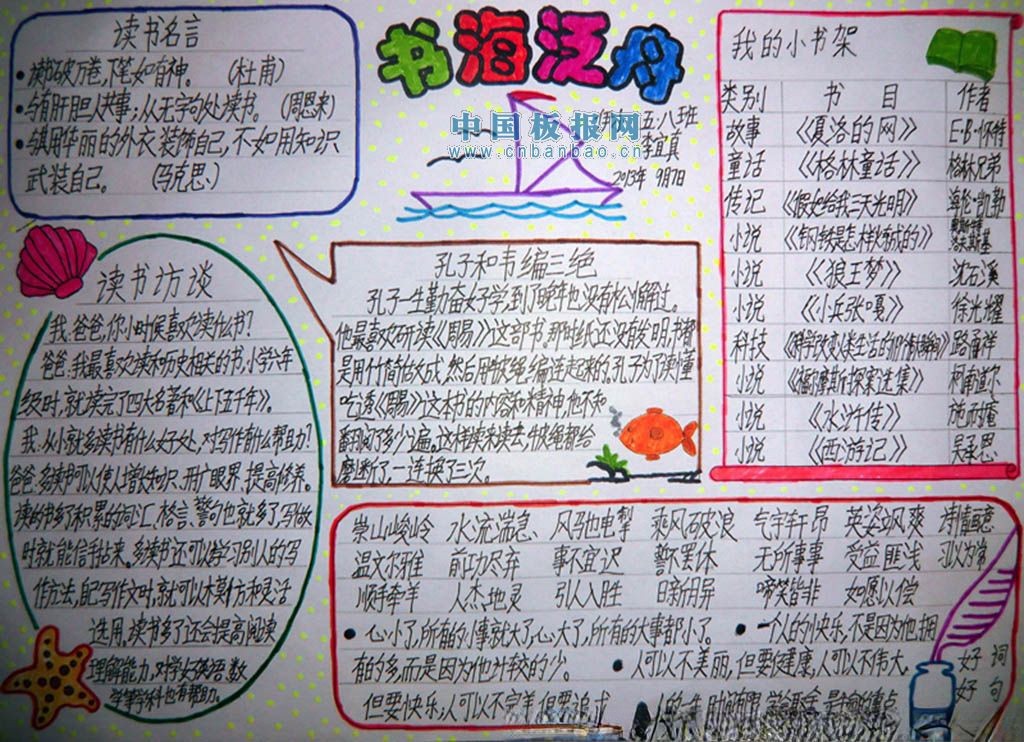 书海泛舟
中国板报网
www.cnbanbao.cn
五.八班
李宜真
2013年 9月7日
读书名言
读书破万卷,下笔如有神。 (杜甫)
与有肝胆人共事;从无字句处读书。 (周恩来)
与其用华丽的外衣装饰自己,不如用知识
武装自己。 (马克思)
我的小书架
类别 书目 作者
故事 《夏洛的网》 E·B·怀特
童话 《格林童话》 格林兄弟
传记 《假如给我三天光明》 海伦·凯勒
小说 《钢铁是怎样炼成的》
小说 《狼王梦》 沈石溪
小说 《小兵张嘎》 徐光耀
科技 路甬祥
小说 《福尔摩斯探案选集》 柯南道尔
小说 《水浒传》 施耐庵
小说 《西游记》 吴承恩
读书访谈
我:爸爸,你小时候喜欢读什么书?
爸爸:我最喜欢读和历史相关的书,小学六年
级时,就读完了四大名著和《上下五千年》。
我:从小就多读书有什么好处,对写作有什么帮助?
爸爸:多读书可以使人增长知识、开广眼界、提高修养。
读的书多了积累的词汇、格言、警句也就多了,写作
时就能信手拈来。多读书还可以学习别人的写
作方法,自己写作文时,就可以模仿和灵活
选用,读书多了还会提高阅读
理解能力,对学好英语、数
学等学科也有帮助。
孔子和韦编三绝
孔子一生勤奋好学,到了晚年也没有松懈过。
他最喜欢研读《周易》这部书,那时纸还没发明,书都
是用竹简做成,然后用牛皮绳编连起来的。孔子为了读懂
吃透《周易》这本书的内容和精神,他不知
翻阅了多少遍。这样读来读去,牛皮绳都给
磨断了,一连换了三次。
崇山峻岭 水流湍急 风马电掣 乘风破浪 气宇轩昂 英姿飒爽 诗情画意
温文尔雅 前功尽弃 事不宜迟 誓不罢休 无所事事 受益匪浅 习以为常
顺手牵羊 人杰地灵 引人入胜 日新月异 啼笑皆非 如愿以偿
心小了,所有的小事就大了,心大了,所有的大事都小了。 一个人的快乐,不是因为他拥
有的多,而是因为他计较的少。 人可以不美丽,但要健康,人可以不伟大,
但要快乐;人可以不完美,但要追求
好词
好句